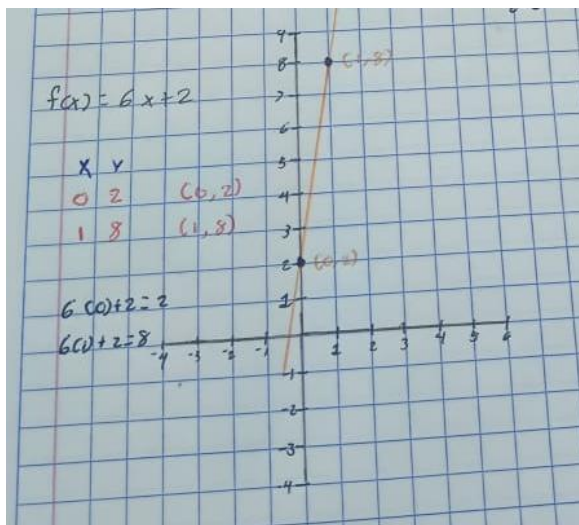 f(x) = 6x+2
X Y
0 2 (0,2)
1 8 (1,8)
6(0)+2=2
6(1)+2=8
9
8 (1,8)
7
6
5
4
3
2 (0,2)
1
-4 -3 -2 -1 1 2 3 4 5 6
-1
-2
-3
-4